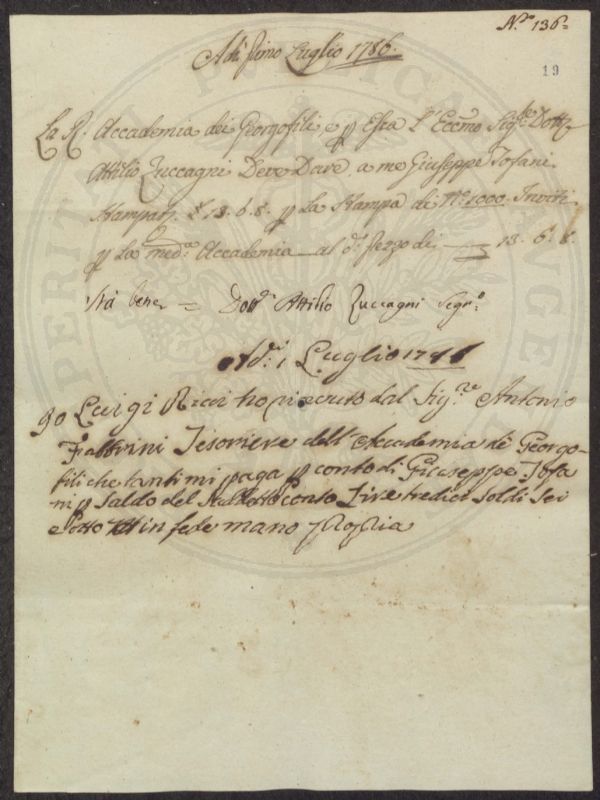 N.o 136=
19
Adi primo Luglio 1786.
La R. Accademia dei Georgofili e p Essa l'Eccmo Sig.re Dott.
Attilio Zuccagni Deve Dare a me Giuseppe Tofani
Stampat. £ 13. 6. 8. p La Stampa di N.o 1000. Inviti
p La med.a Accademia al d.o prezzo di 13. 6. 8.
Stà bene = Dott.r Attilio Zuccagni Segr.o
Ad.i 1 Luglio 1786
Io Luigi Ricci ho ricevuto dal Sig.re Antonio
Tesoriere dell'Accademia de Georgo-
fili che tanti mi paga p conto di Giuseppe Tofa
ni p Saldo del Sudetto conto Lire tredici Soldi Sei
e otto in fede mano propria
PERITAN